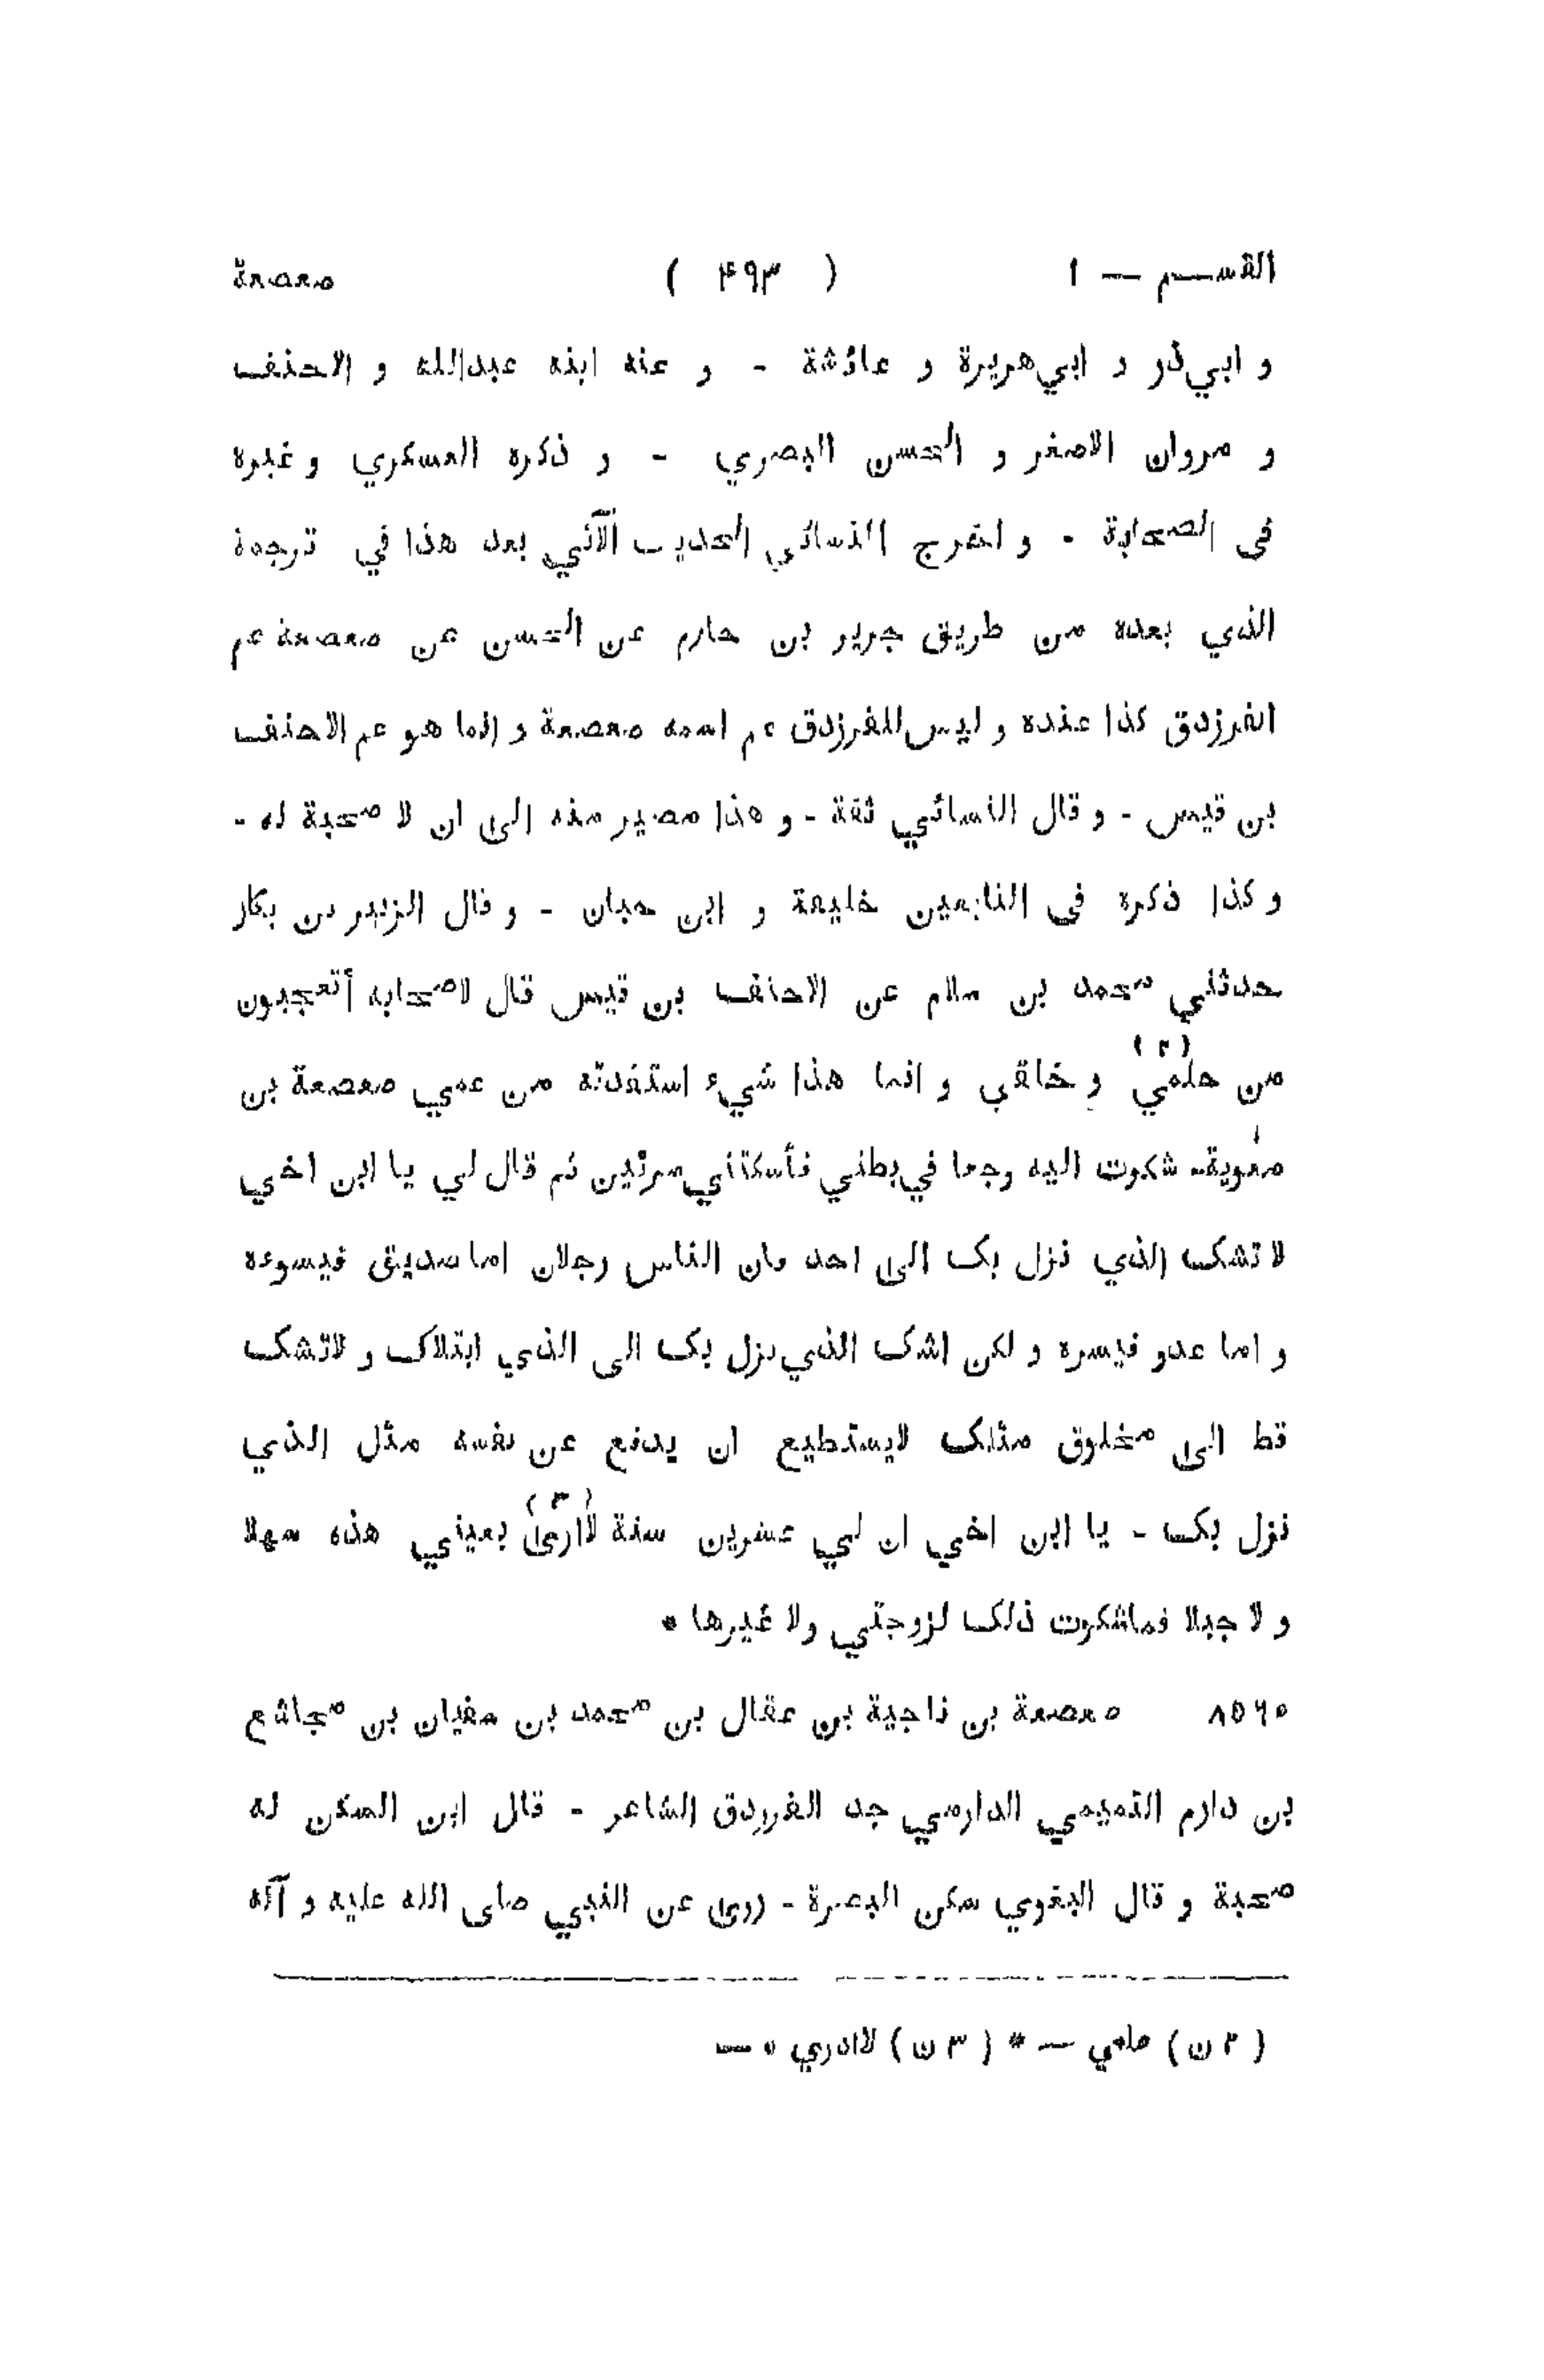 القسم — ١ ( ۴۹۳ ) صعصعة
و ابي ذر و ابي هريرة و عائشة - و عنه ابنه عبدالله و الاحنف
و مروان الاصغر و الحسن البصري - و ذكره العسكري و غيره
فى الصحابة - و اخرج النسائي الحديث الآتي بعد هذا في ترجمة
الذي بعده من طريق جرير بن حازم عن الحسن عن صعصعة عم
الفرزدق كذا عنده و ليس للفرزدق عم اسمه صعصعة و انما هو عم الاحنف
بن قيس - و قال النسائي ثقة - و هذا مصير منه الى ان لا صحبة له -
و كذا ذكره فى التابعين خليفة و ابن حبان - و قال الزبير بن بكار
حدثني محمد بن سلام عن الاحنف بن قيس قال لاصحابه أتعجبون
من حلمي (٢) و خلقي و انما هذا شيء استفدته من عمي صعصعة بن
معوية شكوت اليه وجعا في بطني فأسكتني مرتين ثم قال لي يا ابن اخي
لا تشک الذي نزل بک الى احد فان الناس رجلان اما صديق فيسوءه
و اما عدو فيسره و لكن اشک الذي نزل بک الى الذي ابتلاک و لاتشک
قط الى مخلوق مثلک لايستطيع ان يدفع عن نفسه مثل الذي
نزل بک - يا ابن اخي ان لي عشرين سنة لاارى (٣) بعيني هذه سهلا
و لا جبلا فماشكوت ذلک لزوجتي ولا غيرها *
٨٥٦٠ صعصعة بن ناجية بن عقال بن محمد بن سفيان بن مجاشع
بن دارم التميمي الدارمي جد الفرزدق الشاعر - قال ابن السكن له
صحبة و قال البغوي سكن البصرة - روى عن النبي صلى الله عليه و آله
( ٢ ن ) حلمي — * ( ٣ ن ) لاادري * —